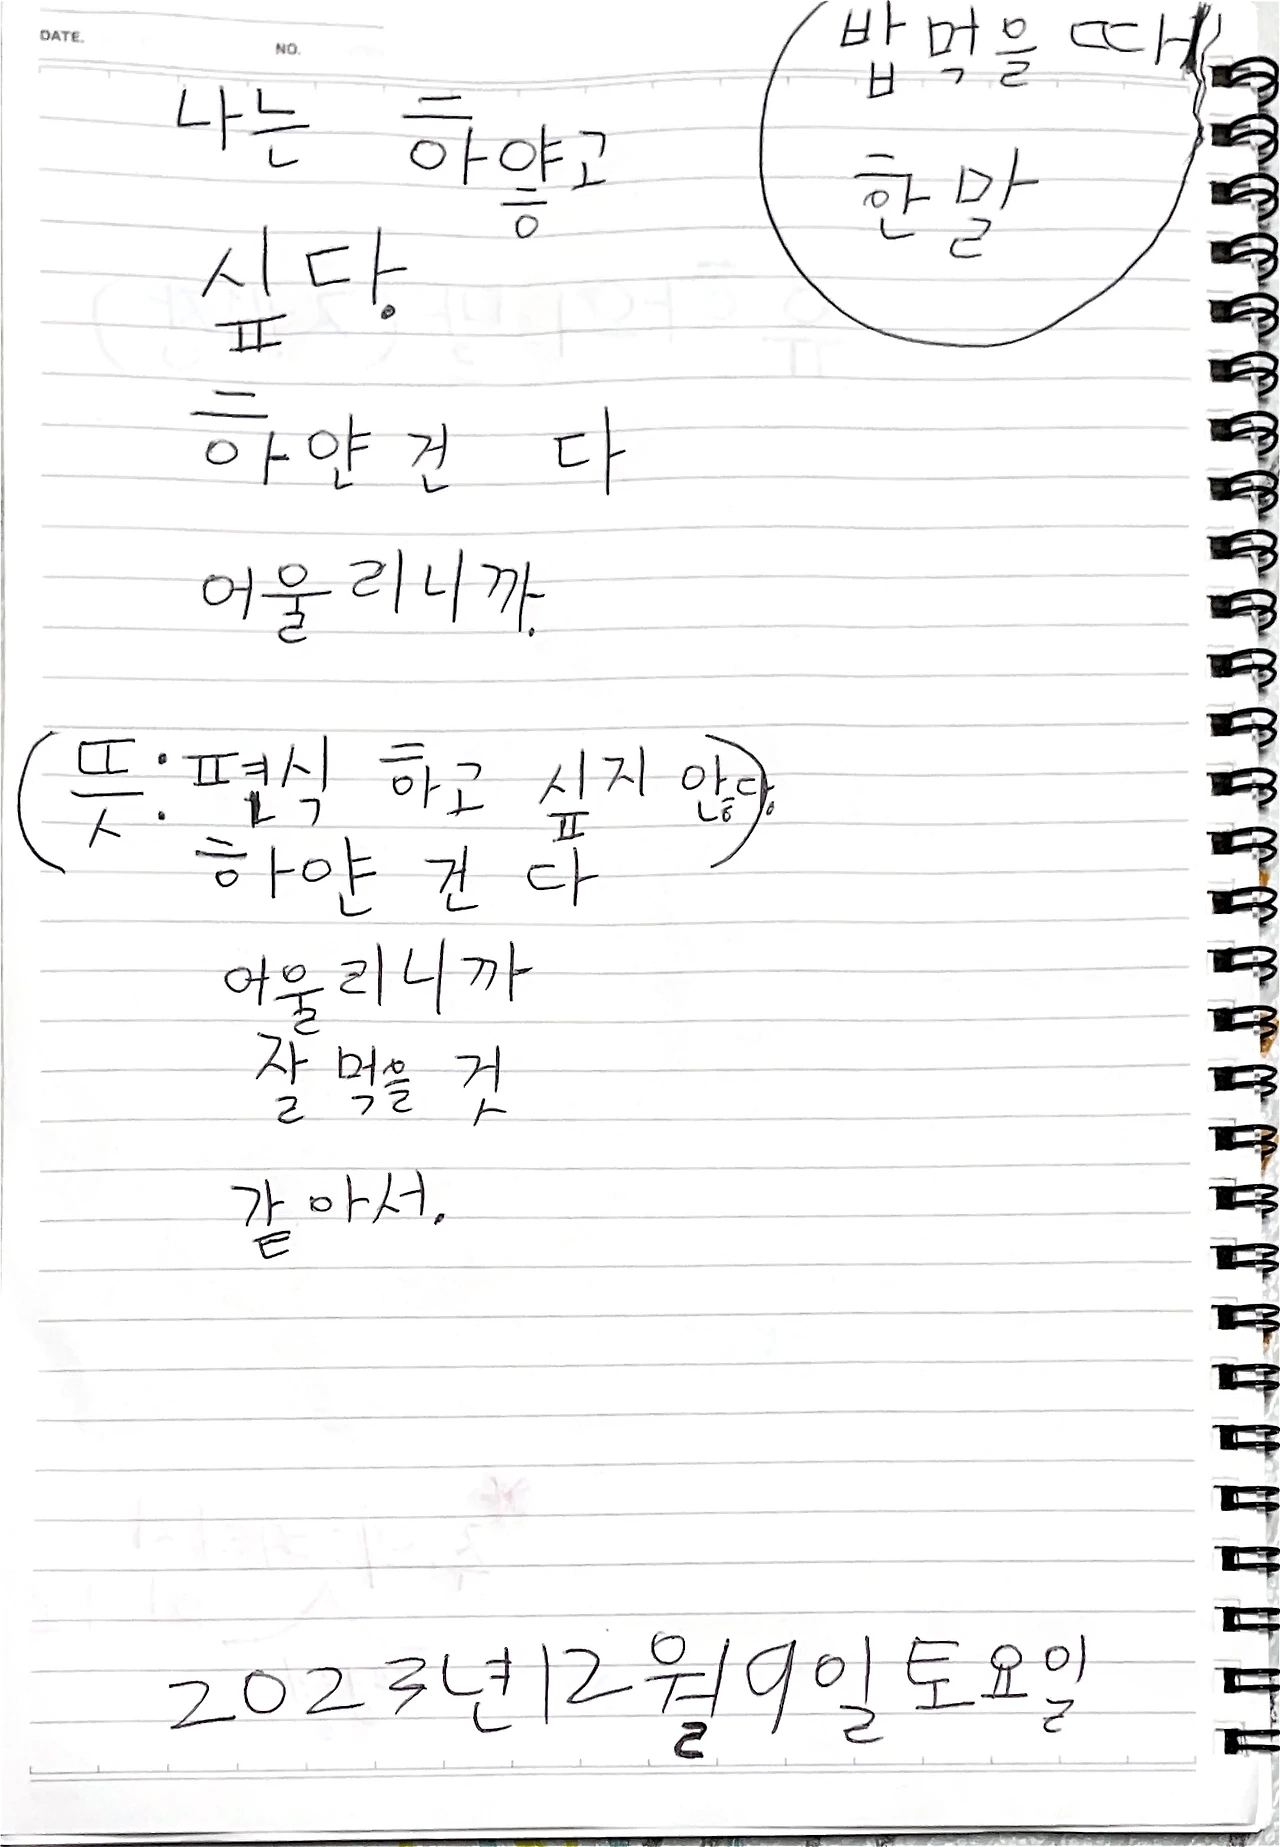 DATE.
NO.
밥먹을 때
한말
나는 하얗고
싶다.
하얀건 다
어울리니까.
(뜻: 편식 하고 싶지 않다.)
하얀 건 다
어울리니까
잘 먹을 것
같아서.
2023년12월9일토요일